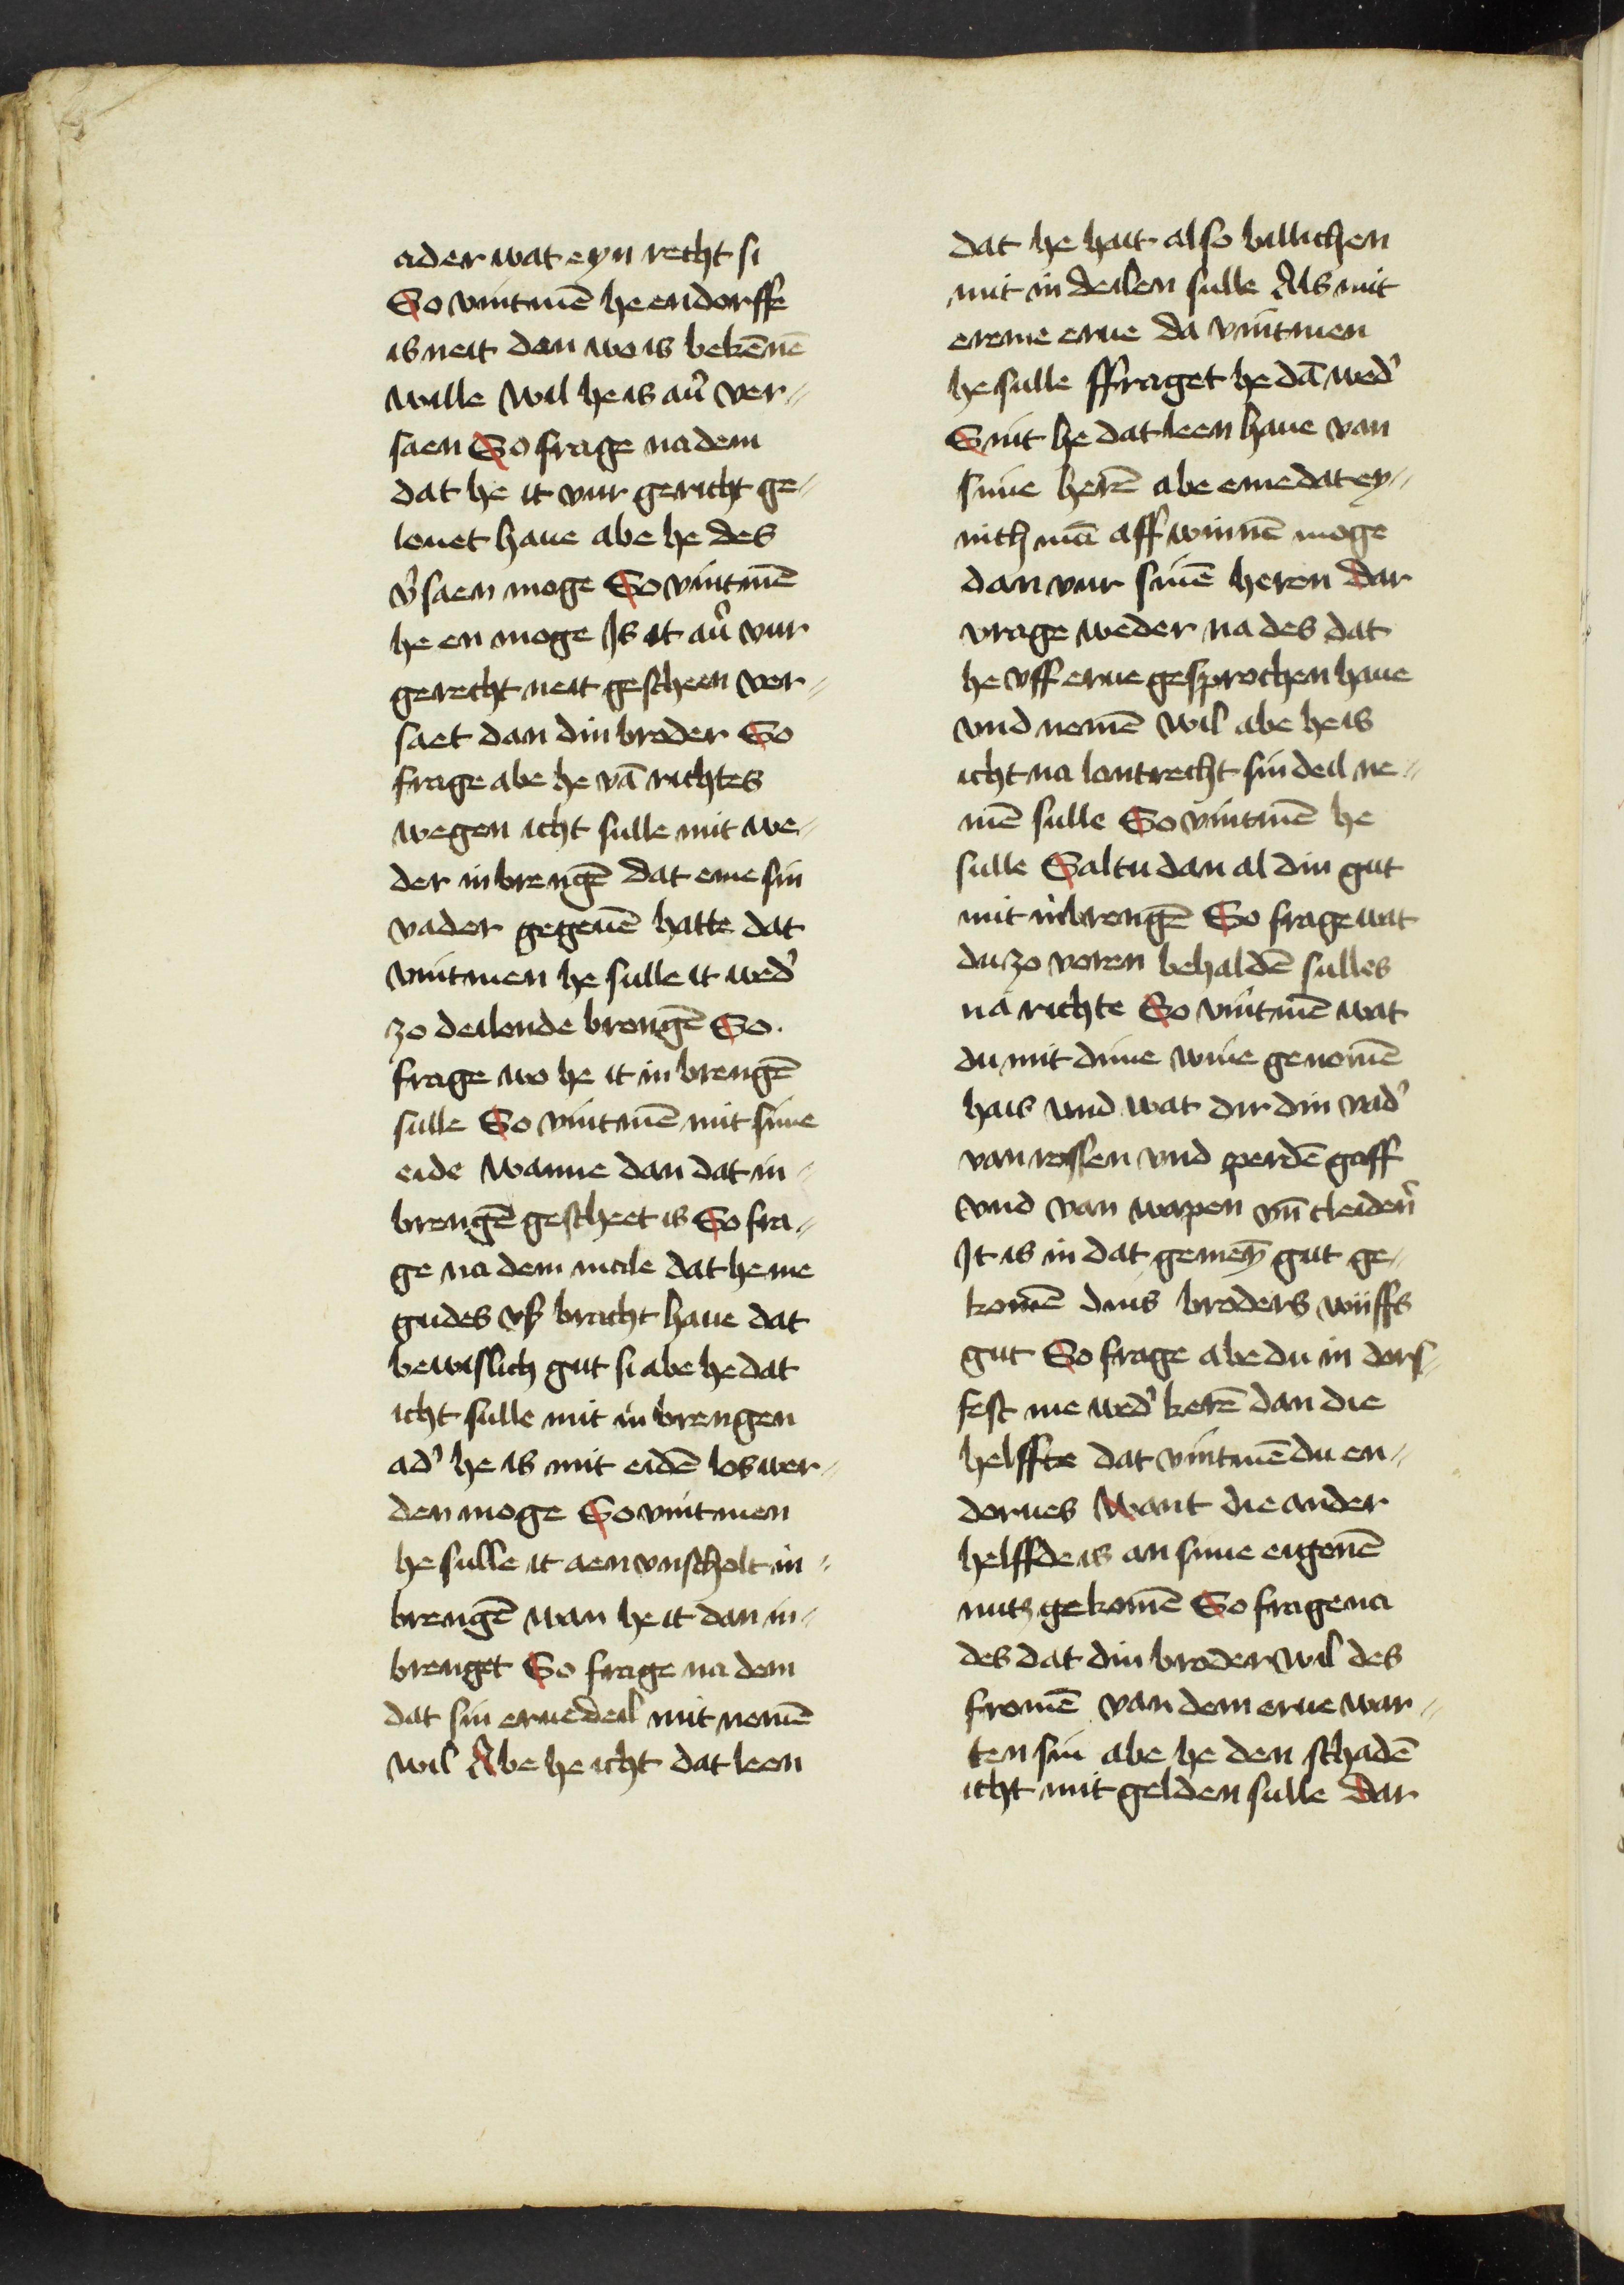 ader wat eyn recht si
So vintmē he endorffe
is neit dan wo is bekēnē
wille Wil he is au̓ ver⸗
saen So frage na dem
dat he it vur gericht ge⸗
louet haue abe he des
v̓saen moge So vintmē
he en moge Is it au̓ vur
gerecht neit gescheen ver⸗
saet dan din broder So
frage abe he vā richtes
wegen icht sulle mit we⸗
der inbrengē dat eme sin
vader gegeuē hatte dat
vintmen he sulle it wed̓
zo deilende brengē So.
frage wo he it in brengē
sulle So vintmē mit sime
eide Wanne dan dat in⸗
brengē gescheet is So fra⸗
ge na dem male dat he me
gudes vß bracht haue dat
bewislich gut si abe he dat
icht sulle mit in brengen
ad̓ he is mit eidē los wer⸗
den moge So vintmen
he sulle it aen vnscholt in⸗
brengē wan he it dan in⸗
brenget So frage na dem
dat sin eruedeil mit nemē
wil Abe he icht dat leen
dat he hait also billichen
mit in deilen sulle Als mit
ereme erue da vintmen
he sulle ffraget he dā wed̓
Sint he dat leen haue van
sime herē abe eme dat ey⸗
nich mā aff winnē moge
dan vur sinē heren dar
vrage weder na des dat
he vff erue gesprochen haue
vnd nemē wil abe he is
icht na lantrecht sin deil ne⸗
mē sulle So vintmē he
sulle Saltu dan al din gut
mit inbrengē So frage wat
du zo voren behaldē sulles
na richte So vintmē wat
du mit dime wiue genomē
hais vnd wat dir din vad̓
van rossen vnd perdē gaff
vnd van wapen vn̄ cleiden̓
It is in dat gemeȳ gut ge⸗
komē dins broders wiiffs
gut So frage abe du in dors⸗
fest me wed̓ kerē dan die
helffte dat vintmē du en⸗
dorues Want die ander
helffde is an sime eigenē
nutz gekomē So frage na
des dat din broder wil des
fromē van dem erue war⸗
ten sin abe he den schadē
icht mit gelden sulle dar